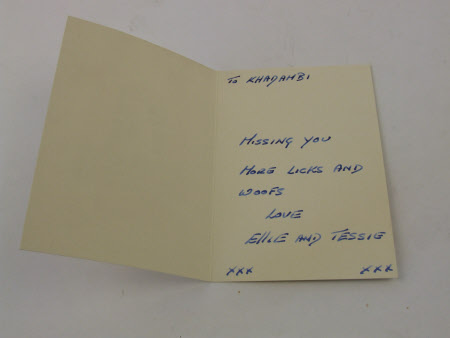 To KHADAMBI
MISSING YOU
MORE LICKS AND
WOOFS
LOVE
EllIE AND TESSIE
xxx xxx